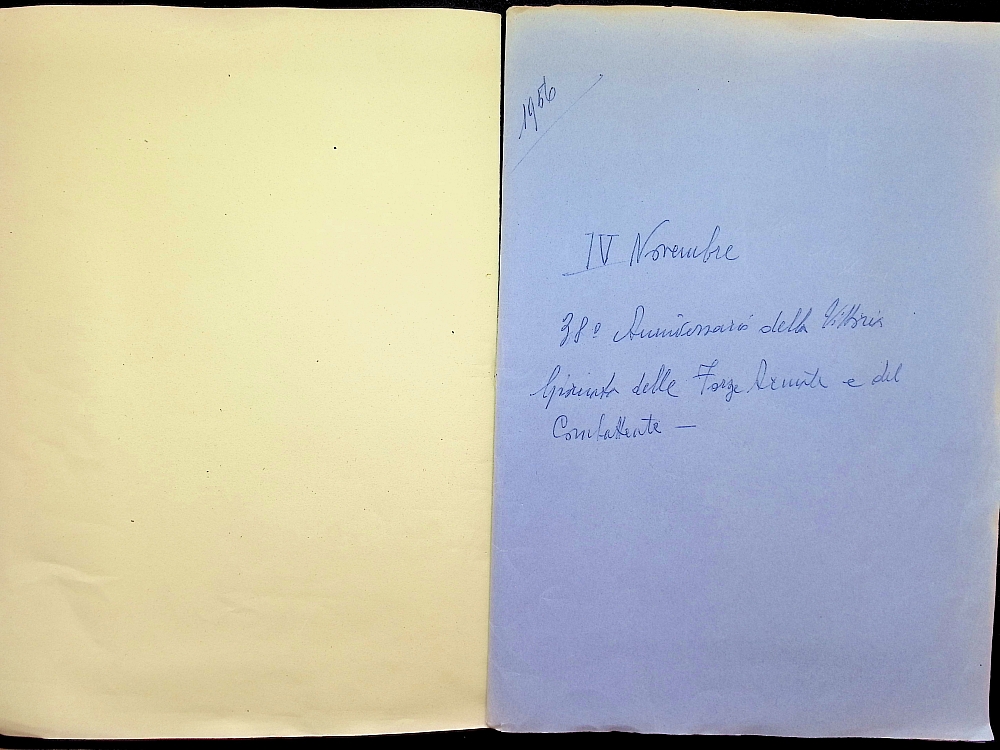 1956
IV Novembre
38º Anniversario della Vittoria
Giornata delle Forze Armate e del
Combattente —